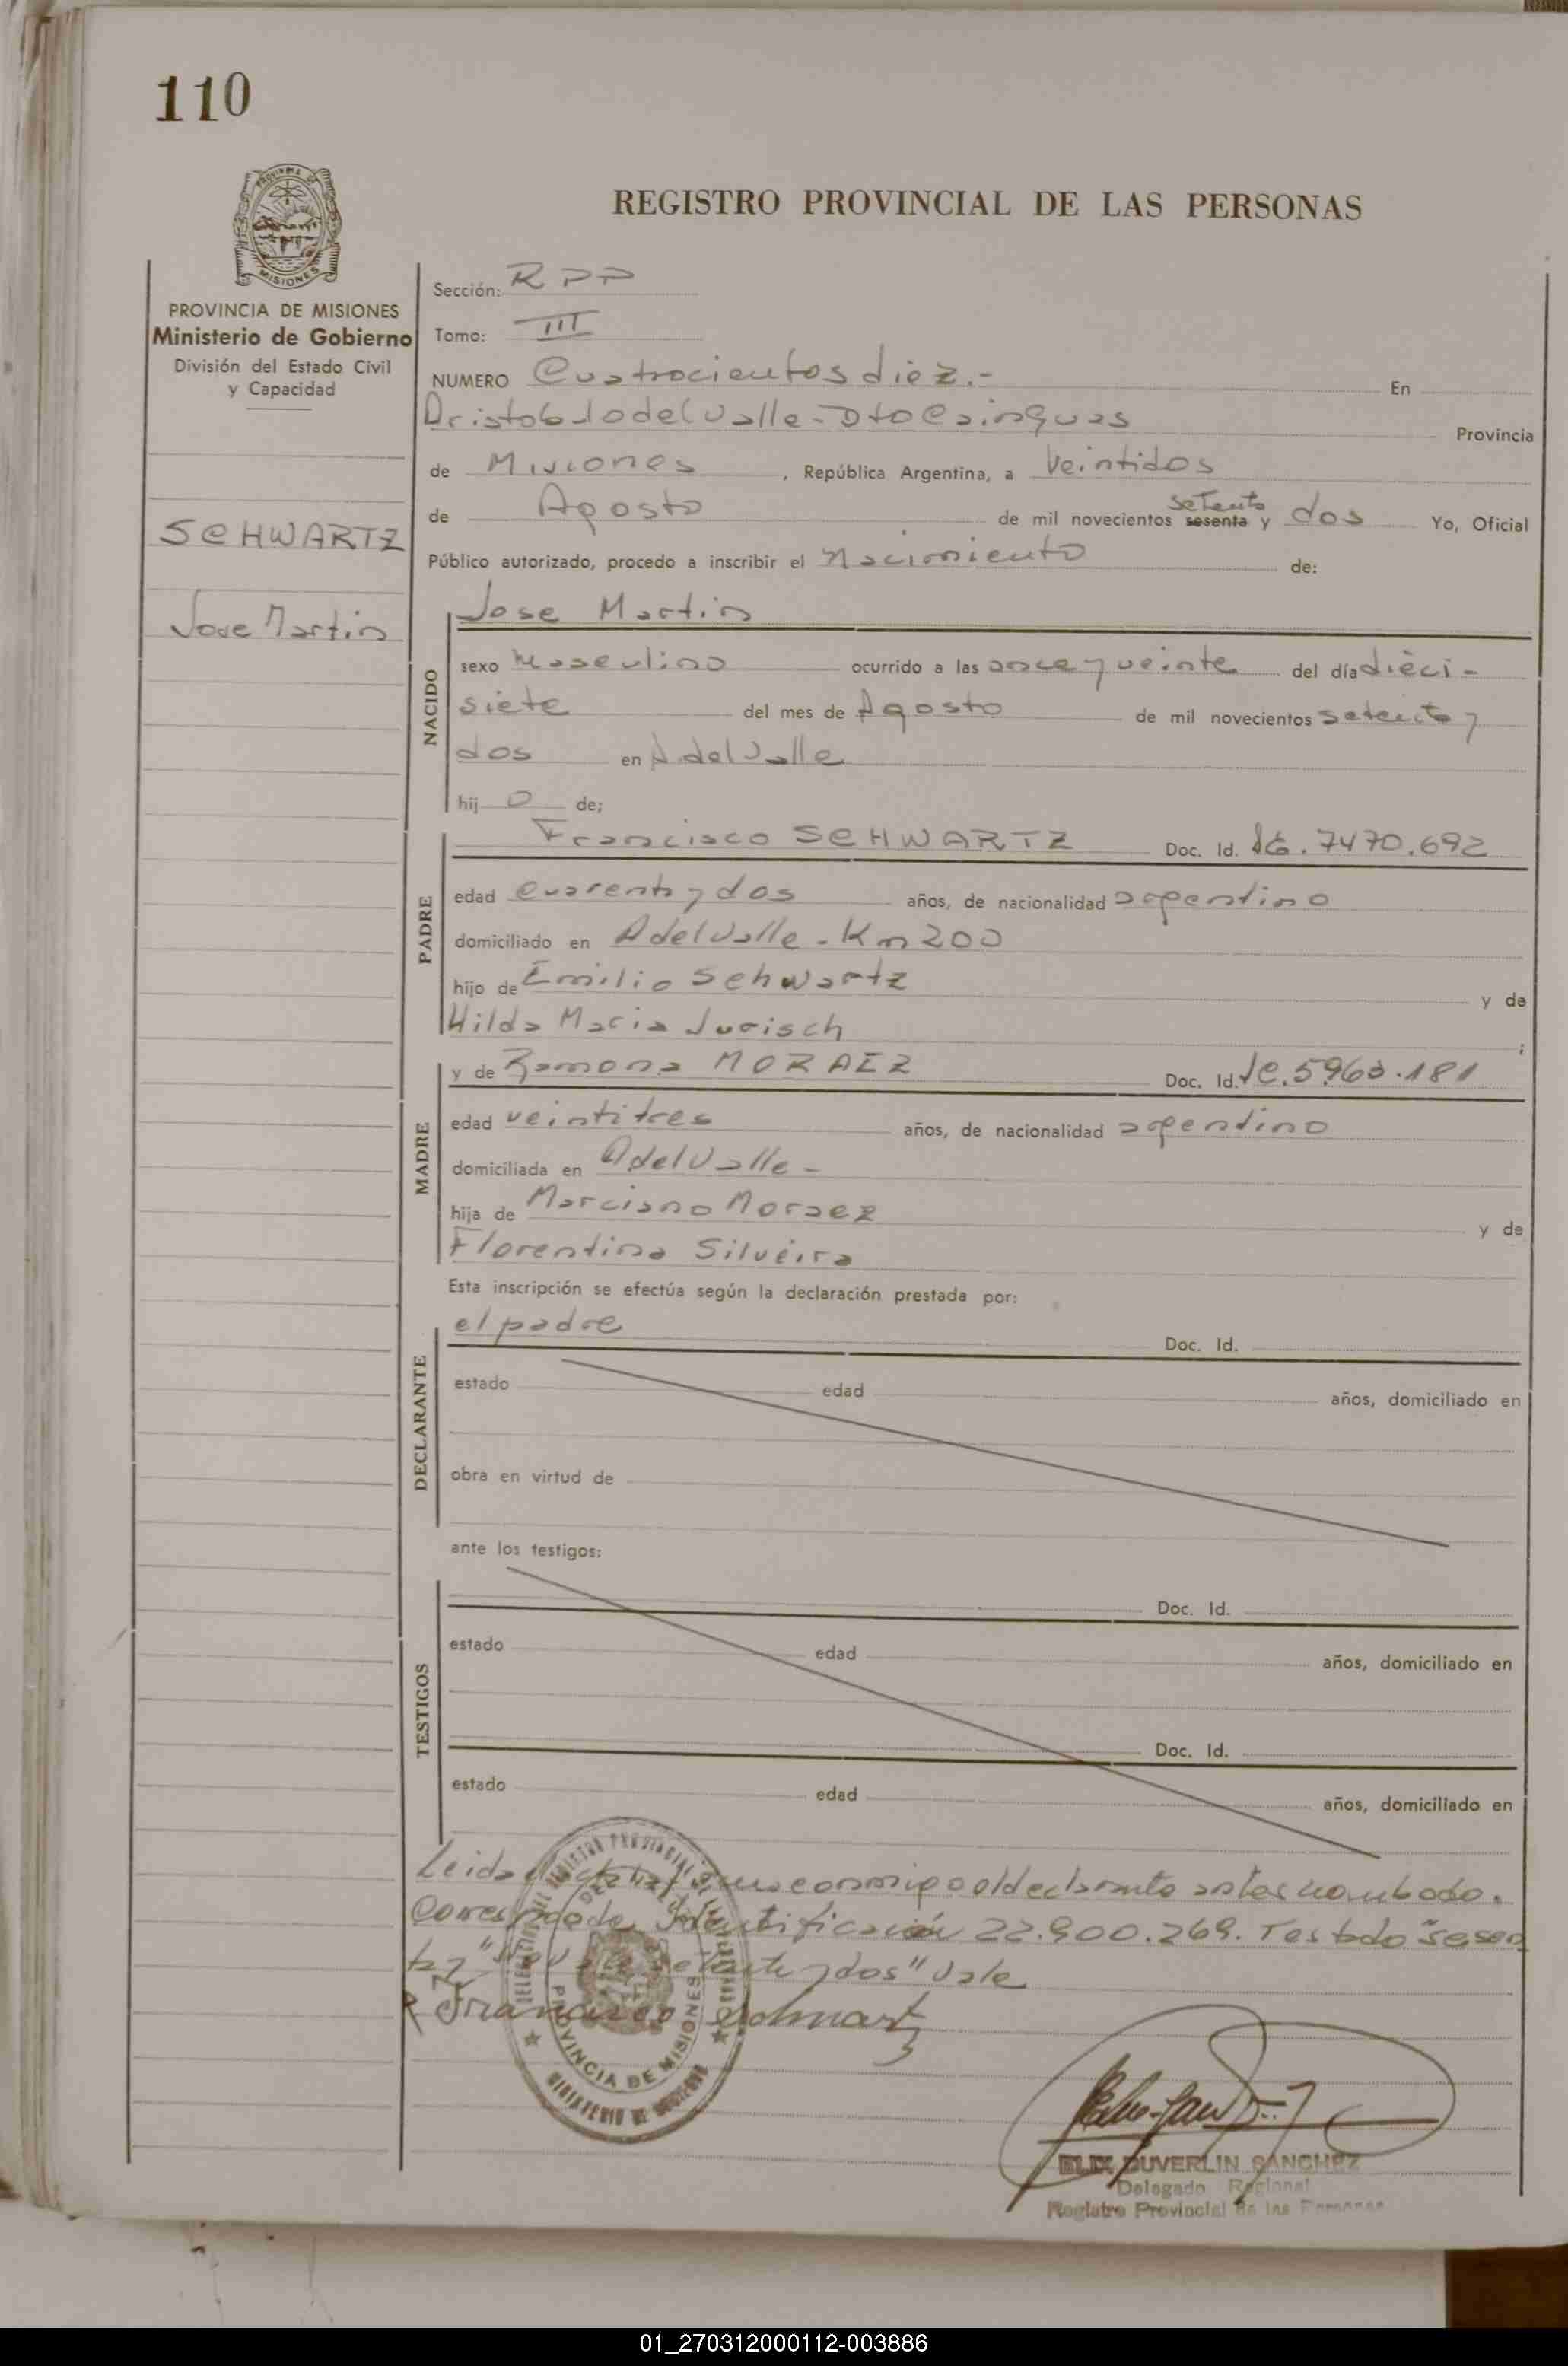 110
PROVINCIA DE MISIONES
Ministerio de Gobierno
División del Estado Civil
y Capacidad
SCHWARTZ
Jose Martin
REGISTRO PROVINCIAL DE LAS PERSONAS
Sección: RPP
Tomo: III
NUMERO Cuatrocientos diez.- En
Aristobulo del Valle - Dto Cainguas Provincia
de Misiones, República Argentina, a Veintidos
de Agosto de mil novecientos sesenta y setenta dos Yo, Oficial
Público autorizado, procedo a inscribir el Nacimiento de:
NACIDO
Jose Martin
sexo Masculino ocurrido a las once y veinte del día dieci-
siete del mes de Agosto de mil novecientos setenta y
dos en A. del Valle
hij o de;
PADRE
Francisco SCHWARTZ Doc. Id. 7470.692
edad cuarenta y dos años, de nacionalidad argentino
domiciliado en A del Valle - Km 200
hijo de Emilio Schwartz y de
Hilda Maria Jurisch ;
MADRE
y de Ramona MORAEZ Doc. Id. LC. 5.963.181
edad veintitres años, de nacionalidad argentino
domiciliada en A del Valle -
hija de Marciano Moraez y de
Florentina Silveira
Esta inscripción se efectúa según la declaración prestada por:
DECLARANTE
el padre Doc. Id.
estado edad años, domiciliado en
obra en virtud de
ante los testigos:
TESTIGOS
Doc. Id.
estado edad años, domiciliado en
Doc. Id.
estado edad años, domiciliado en
Leida el acta firma conmigo el declarante antes nombrado.
Corresponde Identificación 22.900.269. Testado "sesen
ta y" setenta y dos" Vale
Francisco Schwartz
PROVINCIA DE MISIONES
ELIX DUVERLIN SANCHEZ
Delegado Regional
Registro Provincial de las Personas
01_270312000112-003886